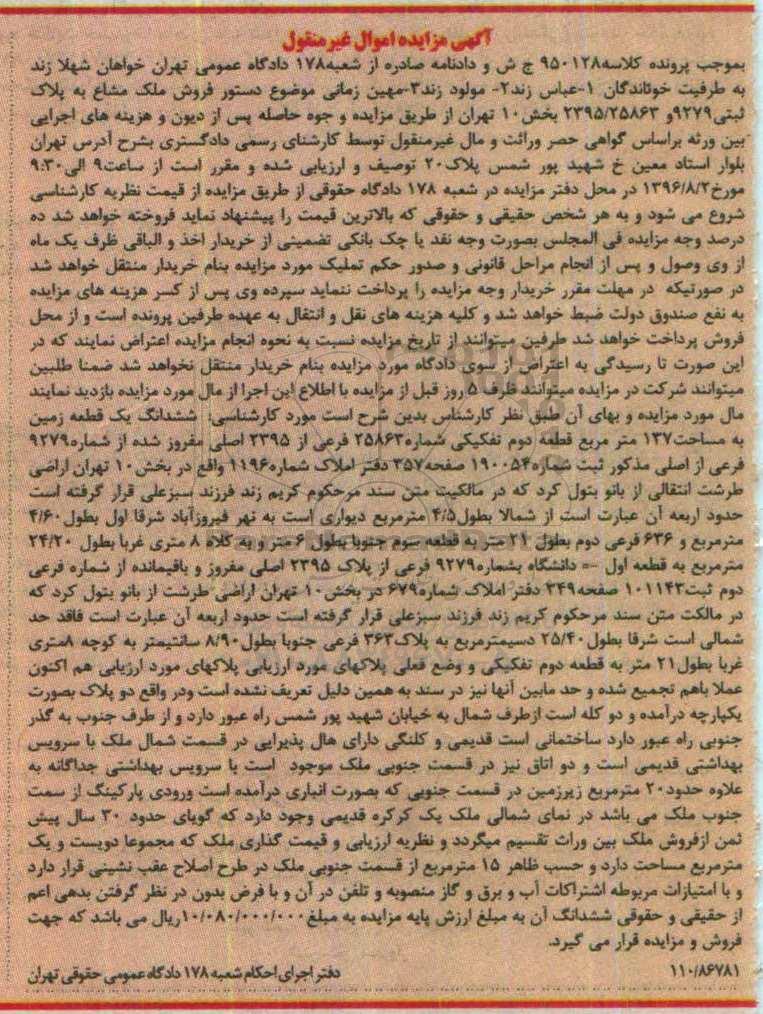 آگهی مزایده اموال غیرمنقول
بموجب پرونده کلاسه۹۵۰۱۲۸ ج ش و دادنامه صادره از شعبه۱۷۸ دادگاه عمومی تهران خواهان شهلا زند
به طرفیت خوٹاندگان ۱-عباس زند۲- مولود زند۳-مهین زمانی موضوع دستور فروش ملک مشاع به پلاک
ثبتی۹۲۷۹و ۲۳۹۵/۲۵۸۶۳ بخش۱۰ تهران از طریق مزایده و جوه حاصله پس از دیون و هزینه های اجرایی
بین ورثه براساس گواهی حصر وراثت و مال غیرمنقول توسط کارشنای رسمی دادگستری بشرح آدرس تهران
بلوار استاد معین خ شهید پور شمس پلاک۲۰ توصیف و ارزیابی شده و مقرر است از ساعت۹ الی۹:۳۰
مورخ۱۳۹۶/۸/۲ در محل دفتر مزایده در شعبه ۱۷۸ دادگاه حقوقی از طریق مزایده از قیمت نظریه کارشناسی
شروع می شود و به هر شخص حقیقی و حقوقی که بالاترین قیمت را پیشنهاد نماید فروخته خواهد شد ده
درصد وجه مزایده فی المجلس بصورت وجه نقد یا چک بانکی تضمینی از خریدار اخذ و الباقی ظرف یک ماه
از وی وصول و پس از انجام مراحل قانونی و صدور حکم تملیک مورد مزایده بنام خریدار منتقل خواهد شد
در صورتیکه در مهلت مقرر خریدار وجه مزایده را پرداخت ننماید سپرده وی پس از کسر هزینه های مزایده
به نفع صندوق دولت ضبط خواهد شد و کلیه هزینه های نقل و انتقال به عهده طرفین پرونده است و از محل
فروش پرداخت خواهد شد طرفین میتوانند از تاریخ مزایده نسبت به نحوه انجام مزایده اعتراض نمایند که در
این صورت تا رسیدگی به اعتراض از سوی دادگاه مورد مزایده بنام خریدار منتقل نخواهد شد ضمنا طلبین
میتوانند شرکت در مزایده میتوانند ظرف ۵ روز قبل از مزایده با اطلاع این اجرا از مال مورد مزایده بازدید نمایند
مال مورد مزایده و بهای آن طبق نظر کارشناس بدین شرح است مورد کارشناسی: ششدانگ یک قطعه زمین
به مساحت۱۳۷ متر مربع قطعه دوم تفکیکی شماره۲۵۸۶۳ فرعی از ۲۳۹۵ اصلی مفروز شده از شماره۹۲۷۹
فرعی از اصلی مذکور ثبت شماره۱۹۰۰۵۴ صفحه۳۵۷ دفتر املاک شماره۱۱۹۶ واقع در بخش۱۰ تهران اراضی
طرشت انتقالی از بانو بتول کرد که در مالکیت متن سند مرحکوم کریم زند فرزند سبزعلی قرار گرفته است
حدود اربعه آن عبارت است از شمالا بطول۴/۵ مترمربع دیواری است به نهر فیروزآباد شرقا اول بطول۴/۶۰
مترمربع و ۶۳۶ فرعی دوم بطول ۲۱ متر به قطعه سوم جنوبا بطول ۶ متر و به کلاه ۸ متری غربا بطول ۲۴/۲۰
مترمربع به قطعه اول -= دانشگاه بشماره۹۲۷۹ فرعی از پلاک ۲۳۹۵ اصلی مفروز و باقیمانده از شماره فرعی
دوم ثبت۱۰۱۱۴۳ صفحه۳۴۹ دفتر املاک شماره۶۷۹ در بخش۱۰ تهران اراضی طرشت از بانو بتول کرد که
در مالکت متن سند مرحکوم کریم زند فرزند سبزعلی قرار گرفته است حدود اربعه آن عبارت است فاقد حد
شمالی است شرقا بطول۲۵/۴۰ دسیمترمربع به پلاک۳۶۳ فرعی جنوبا بطول۸/۹۰ سانتیمتر به کوچه ۸متری
غربا بطول۲۱ متر به قطعه دوم تفکیکی و وضع فعلی پلاکهای مورد ارزیابی پلاکهای مورد ارزیابی هم اکنون
عملا باهم تجمیع شده و حد مابین آنها نیز در سند به همین دلیل تعریف نشده است ودر واقع دو پلاک بصورت
یکپارچه درآمده و دو کله است ازطرف شمال به خیابان شهید پور شمس راه عبور دارد و از طرف جنوب به گذر
جنوبی راه عبور دارد ساختمانی است قدیمی و کلنگی دارای هال پذیرایی در قسمت شمال ملک با سرویس
بهداشتی قدیمی است و دو اتاق نیز در قسمت جنوبی ملک موجود است با سرویس بهداشتی جداگانه به
علاوه حدود۲۰ مترمربع زیرزمین در قسمت جنوبی که بصورت انباری درآمده است ورودی پارکینگ از سمت
جنوب ملک می باشد در نمای شمالی ملک یک کرکره قدیمی وجود دارد که گویای حدود ۳۰ سال پیش
ثمن ازفروش ملک بین وراث تقسیم میگردد و نظریه ارزیابی و قیمت گذاری ملک که مجموعا دویست و یک
مترمربع مساحت دارد و حسب ظاهر ۱۵ مترمربع از قسمت جنوبی ملک در طرح اصلاح عقب نشینی قرار دارد
و با امتیازات مربوطه اشتراکات آب و برق و گاز منصوبه و تلفن در آن و با فرض بدون در نظر گرفتن بدهی اعم
از حقیقی و حقوقی ششدانگ آن به مبلغ ارزش پایه مزایده به مبلغ۱۰/۰۸۰/۰۰۰/۰۰۰ریال می باشد که جهت
فروش و مزایده قرار می گیرد.
۱۱۰/۸۶۷۸۱ دفتر اجرای احکام شعبه ۱۷۸ دادگاه عمومی حقوقی تهران